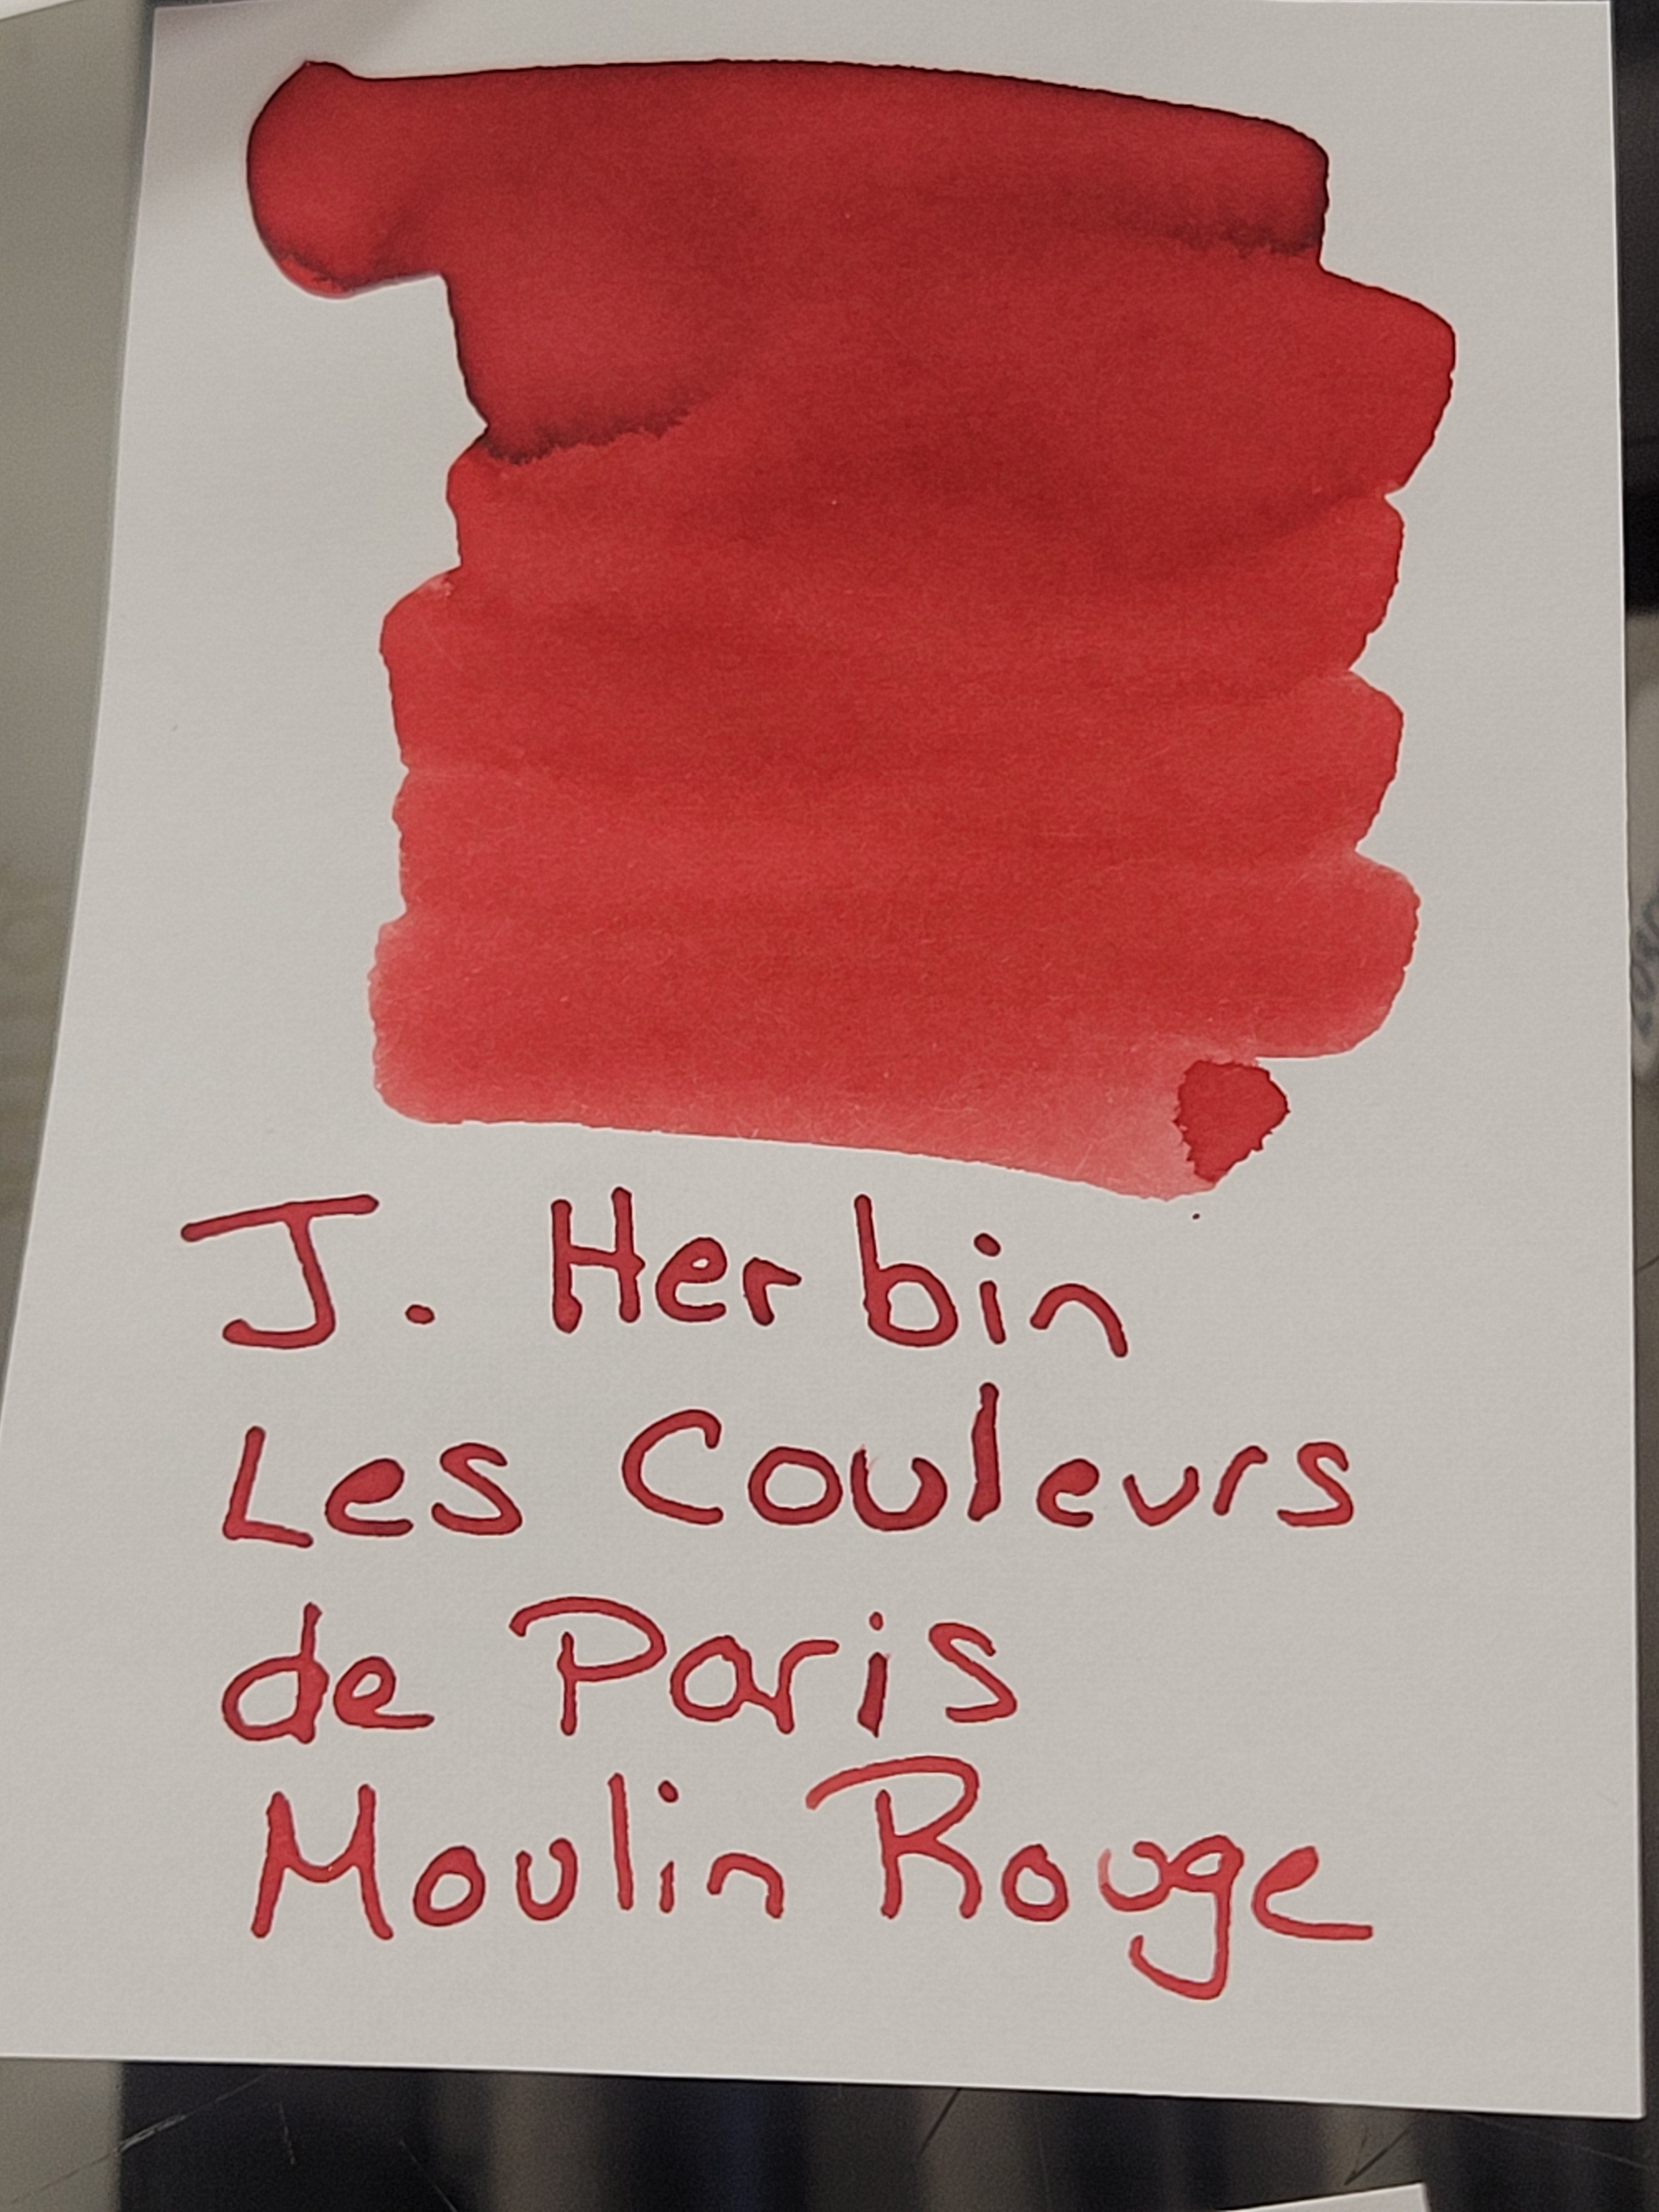 J. Herbin
Les Couleurs
de Paris
Moulin Rouge